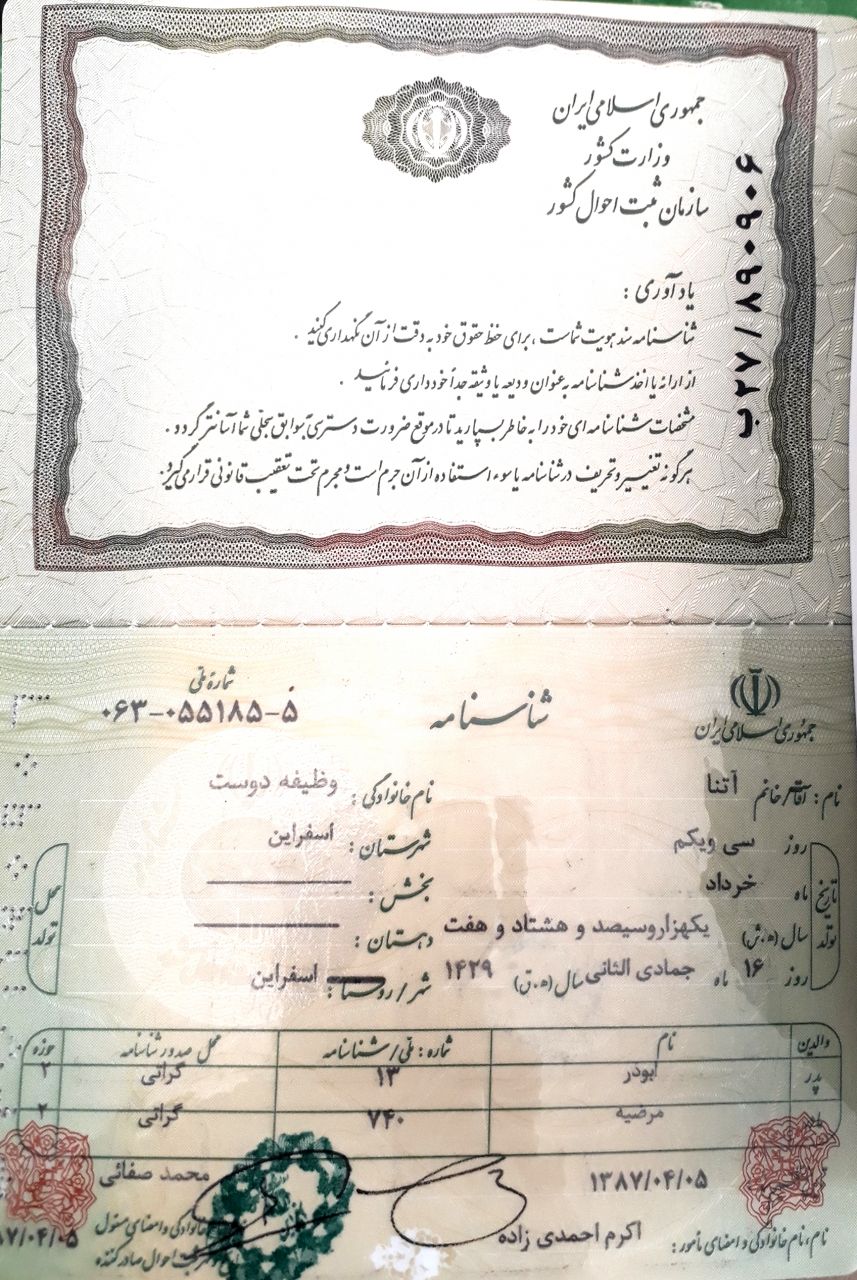 جمهوری اسلامی ایران
وزارت کشور
سازمان ثبت احوال کشور
ب ۲۷/۸۹۰۹۰۶
یادآوری :
شناسنامه سند هویت شماست ، برای حفظ حقوق خود به دقت از آن نگهداری کنید .
از ارائه یا اخذ شناسنامه به عنوان ودیعه یا وثیقه جداً خودداری فرمائید .
مشخصات شناسنامه ای خود را به خاطر بسپارید تا در موقع ضرورت دسترسی به سوابق سجلی شما آسانتر گردد .
هرگونه تغییر و تحریف در شناسنامه یا سوء استفاده از آن جرم است و مجرم تحت تعقیب قانونی قرار می گیرد.
جمهوری اسلامی ایران
شناسنامه
شمارهٔ ملی
۰۶۳-۰۵۵۱۸۵-۵
نام : آقا/خانم آتنا نام خانوادگی : وظیفه دوست
تاریخ تولد
روز سی ویکم
ماه خرداد
سال (ه.ش) یکهزاروسیصد و هشتاد و هفت
روز ۱۶ ماه جمادی الثانی سال (ه.ق) ۱۴۲۹
محل تولد
شهرستان : اسفراین
بخش :
دهستان :
شهر/روستا : اسفراین
والدین نام شماره : ملی/شناسنامه محل صدور شناسنامه حوزه
پدر ابوذر ۱۳ گراتی ۲
مادر مرضیه ۷۴۰ گراتی ۲
۱۳۸۷/۰۴/۰۵ محمد صفائی
نام، نام خانوادگی و امضای مأمور : اکرم احمدی زاده
خانوادگی و امضای مسئول
ثبت احوال صادر کننده
۸۷/۰۴/۰۵